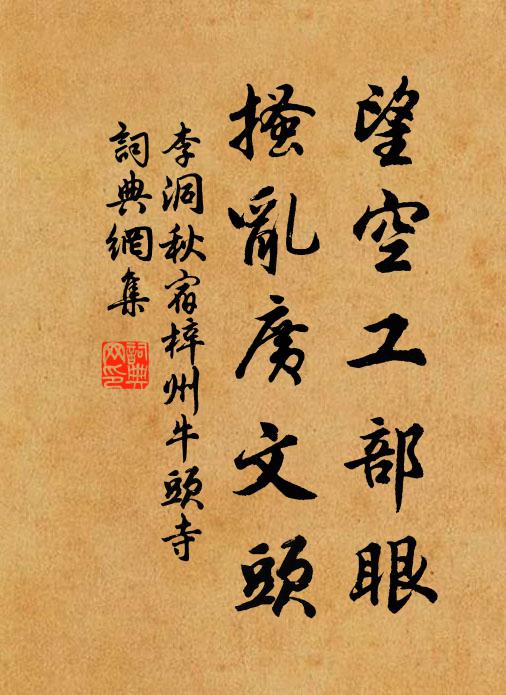 望空工部眼
搔亂廣文頭
李洞秋宿梓州牛頭寺
詞典網集
詞典網印